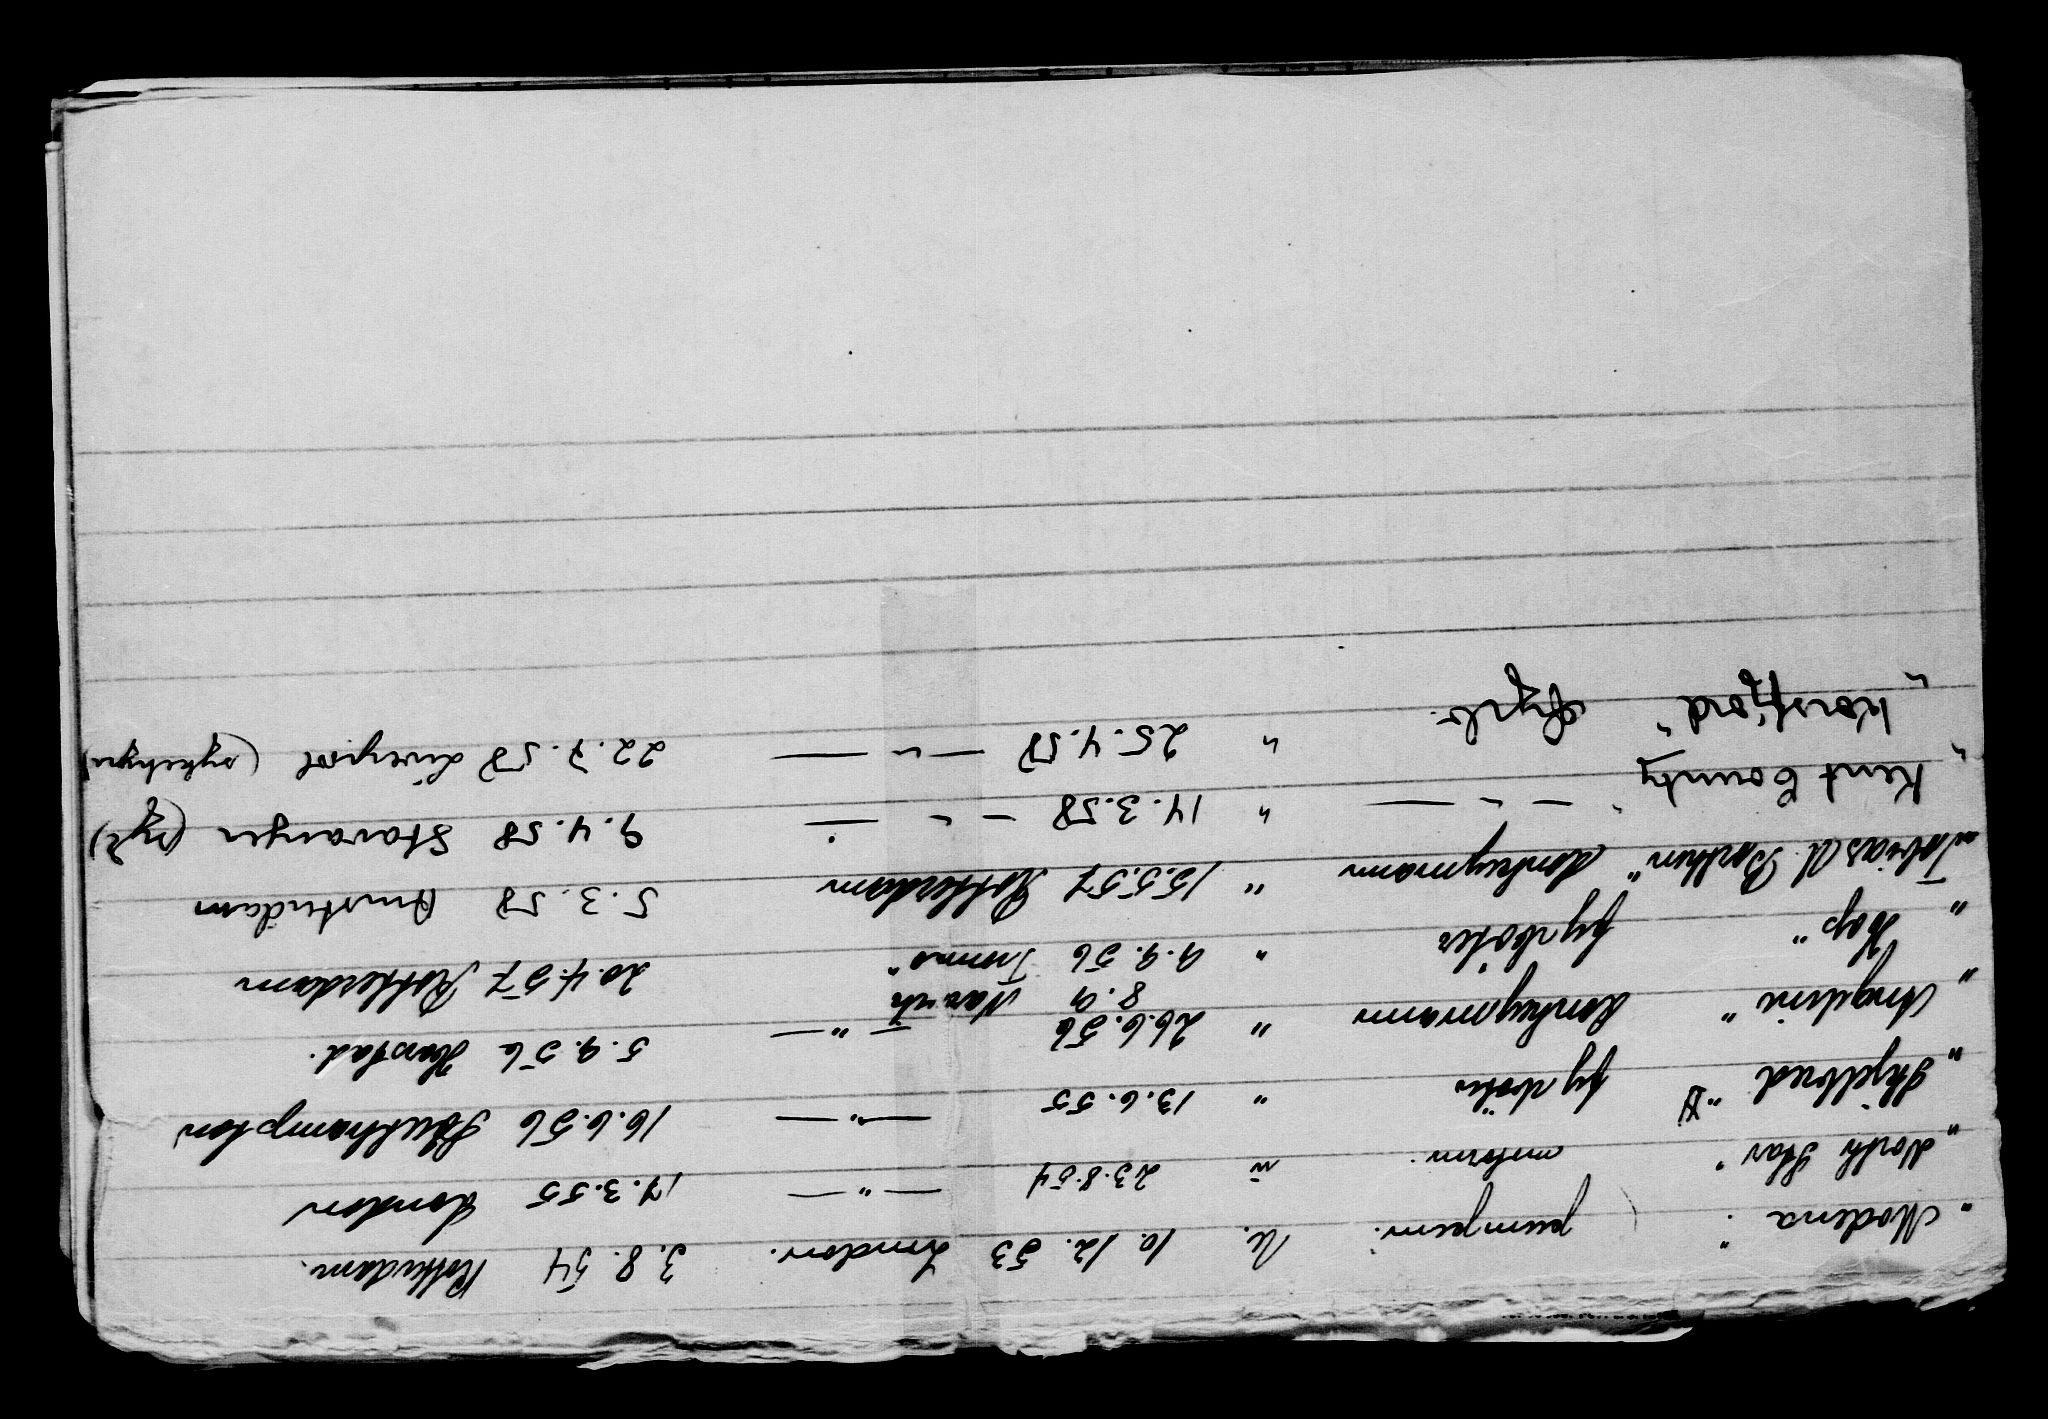 "Modena" pumpem. u. 10.12.53 London. 3.8.54 Rotterdam.
"North Star" motorm. " 23.8.54 — " — 17.3.55 London
"Skjelbred" fyrbøter " 13.6.55 — " — 16.6.56 Southampton
"Angelina" donkeymann " 26.6.56 — " — 5.9.56 Harstad.
8.9 Narvik
"Hop" fyrbøter " 9.9.56 Tromsø" 20.4.57 Rotterdam
"Tobias U. Borthen" donkeymann " 15.5.57 Rotterdam 5.3.58 Amsterdam
"Kent County" — " — " 14.3.58 — " — 9.4.58 Stavanger (syk)
"Korsfjord" Fyrb. " 25.4.58 — " — 22.7.58 Liverpool